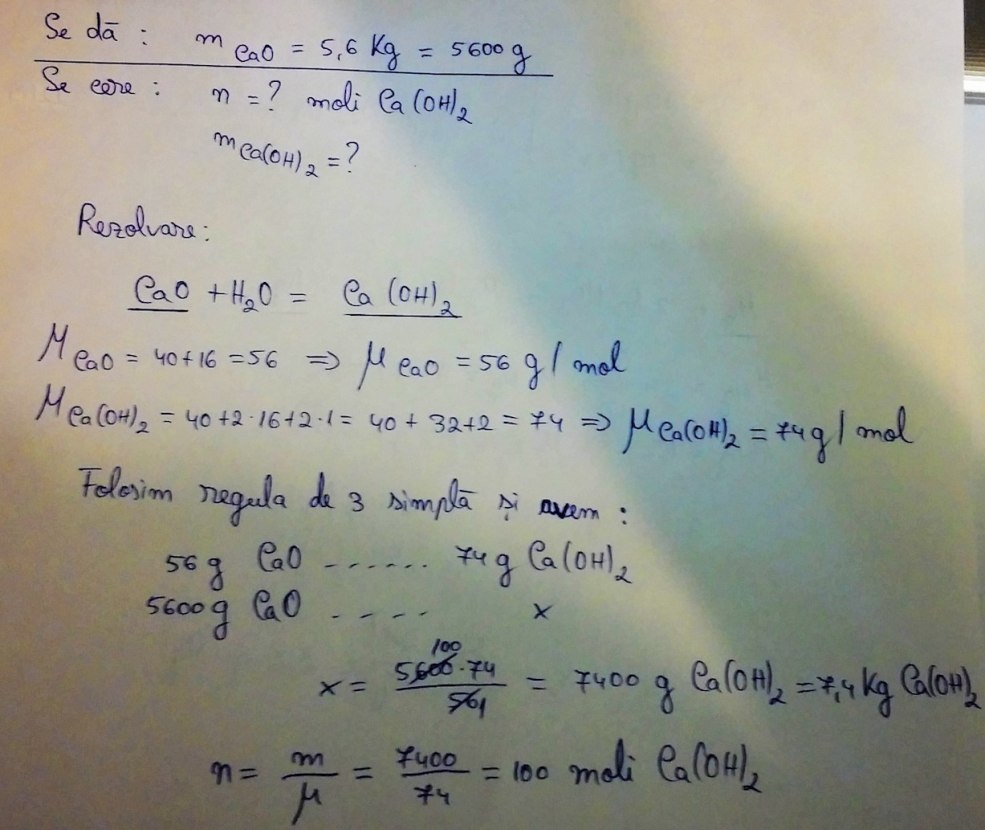 Se dă : m CaO = 5,6 Kg = 5600 g
Se cere : n = ? moli Ca(OH)₂
m Ca(OH)₂ = ?
Rezolvare:
CaO + H₂O = Ca(OH)₂
M CaO = 40+16 = 56 => μ CaO = 56 g/mol
M Ca(OH)₂ = 40+2·16+2·1 = 40 + 32+2 = 74 => μ Ca(OH)₂ = 74g/mol
Folosim regula de 3 simplă și avem :
56 g CaO ...... 74 g Ca(OH)₂
5600 g CaO .... x
100
x = 5600·74 / 56 1 = 7400 g Ca(OH)₂ = 7,4 Kg Ca(OH)₂
n = m / μ = 7400 / 74 = 100 moli Ca(OH)₂